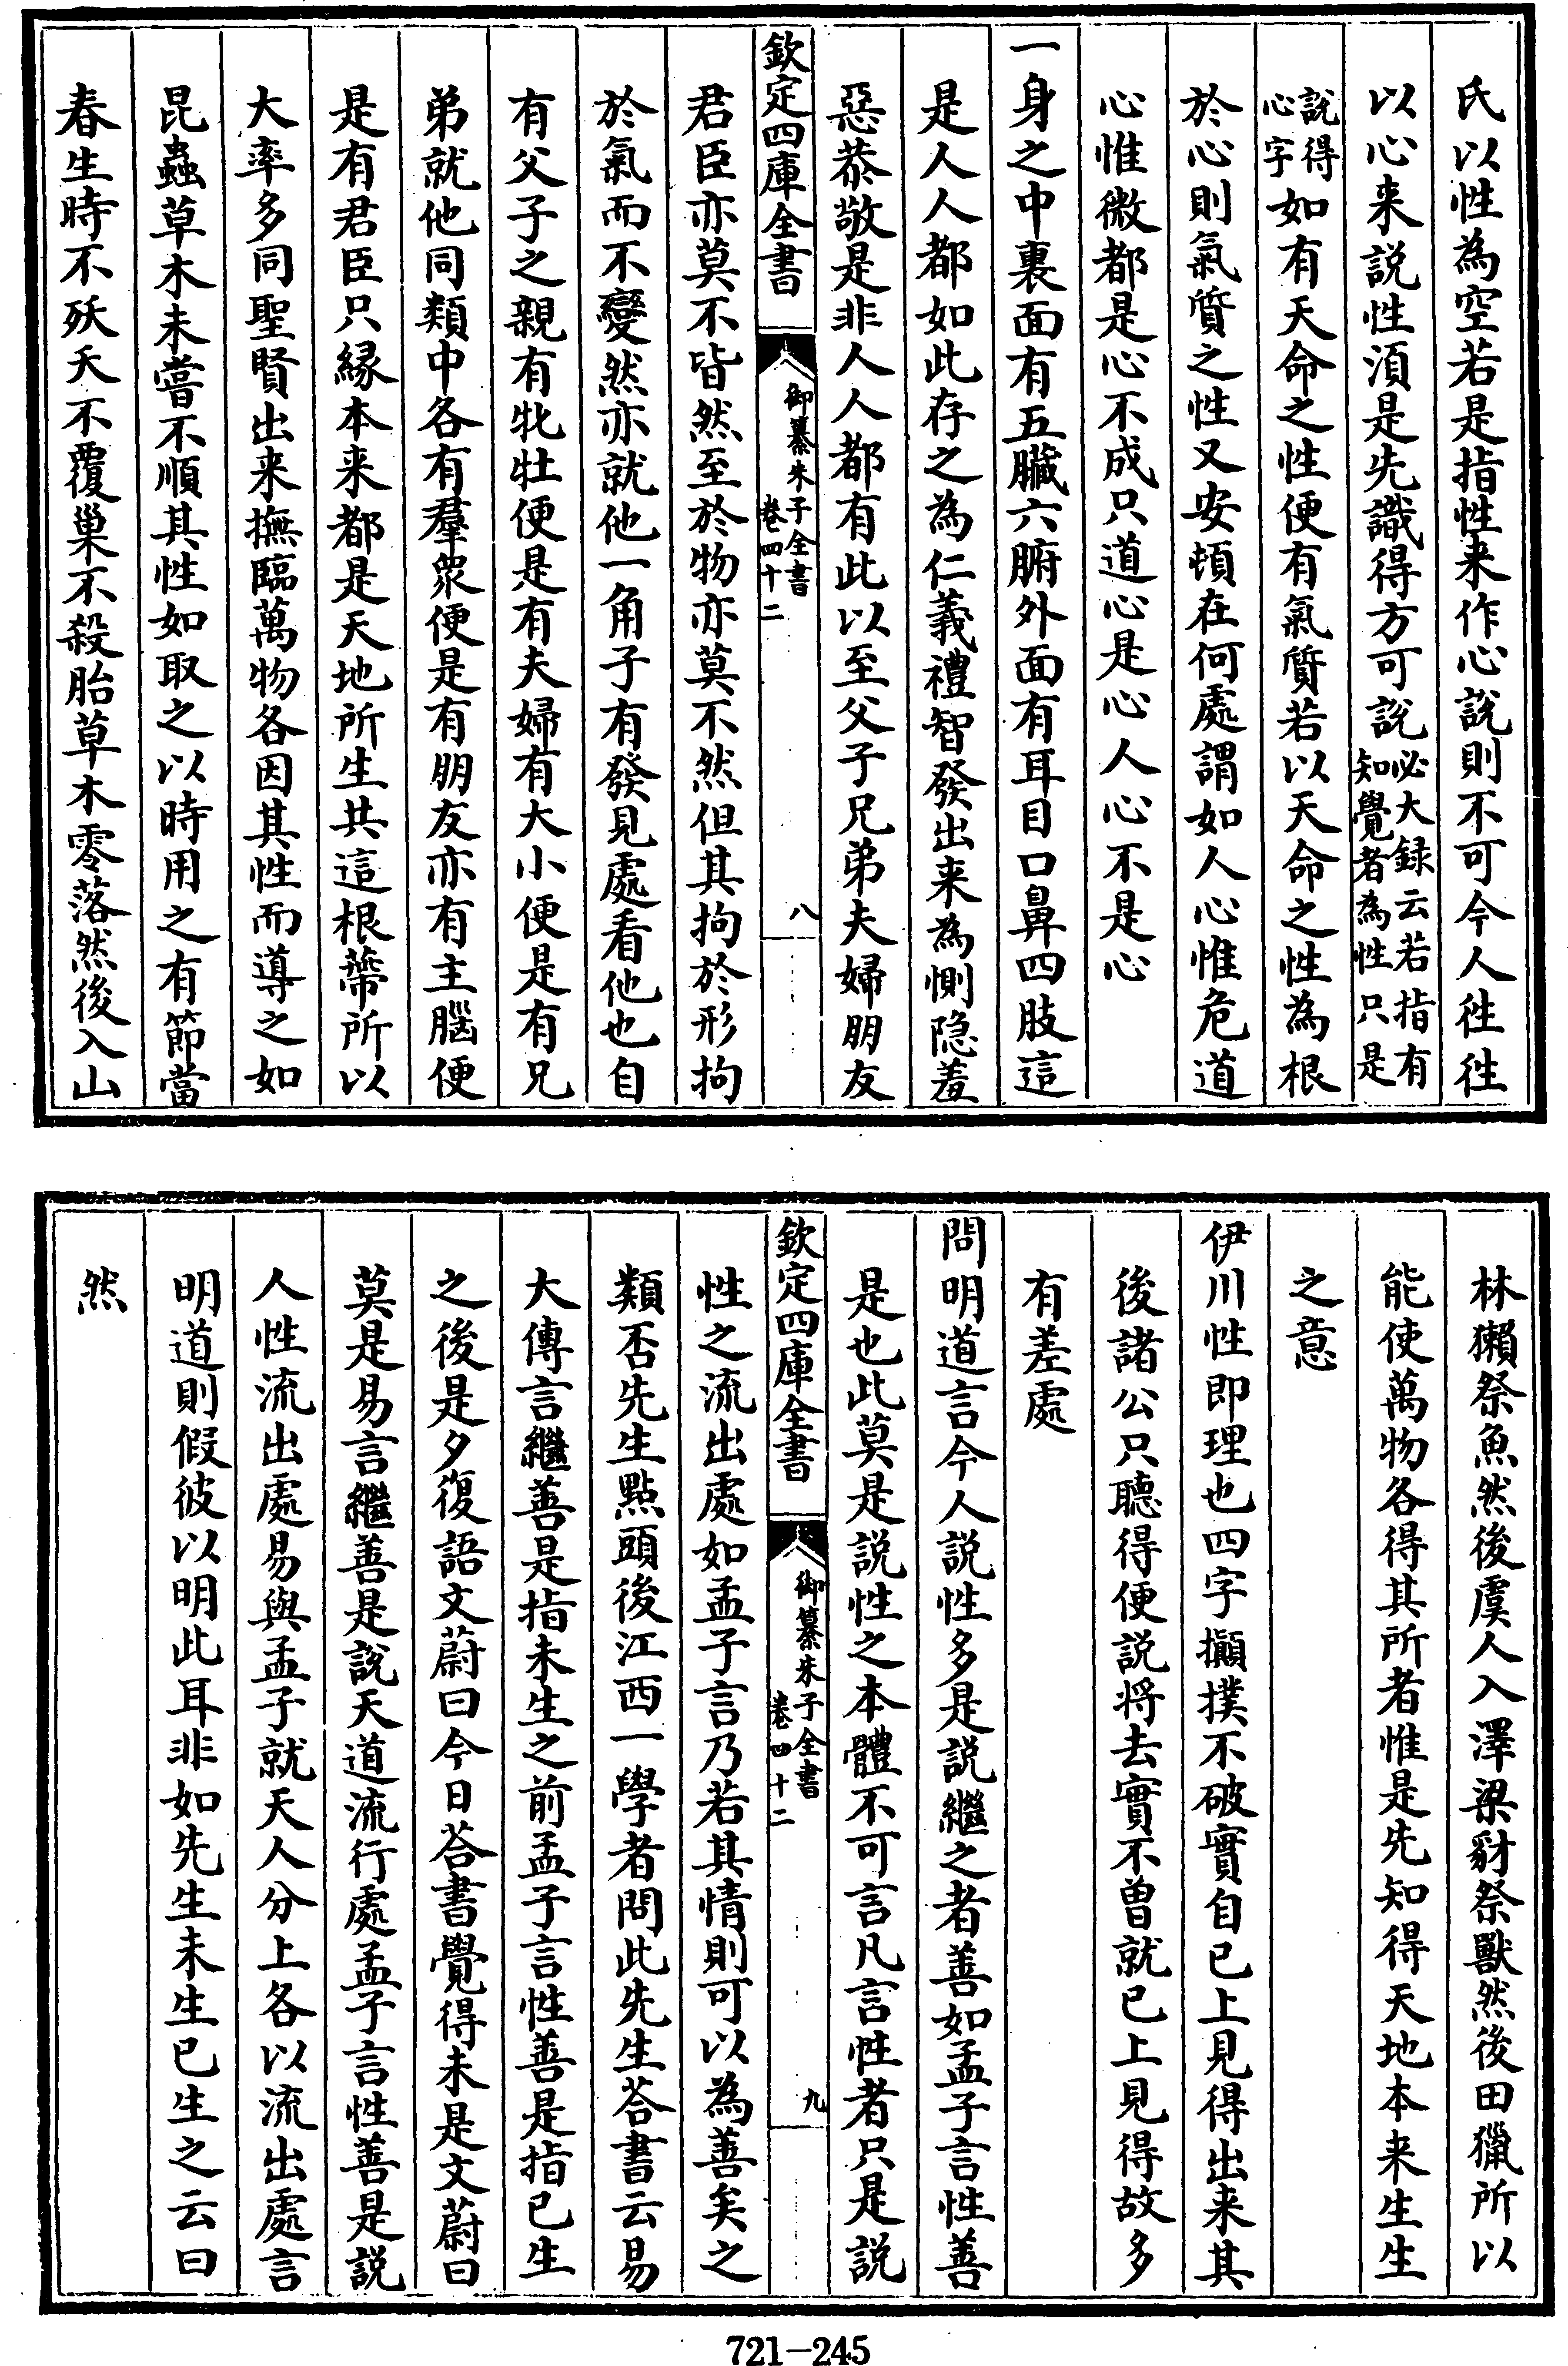 氏以性為空若是指性来作心說則不可今人徃徃
以心来說性湏是先識得方可說必大録云若指有知覺者為性只是
說得心字如有天命之性便有氣質若以天命之性為根
於心則氣質之性又安頓在何處謂如人心惟危道
心惟微都是心不成只道心是心人心不是心
一身之中裏面有五臟六腑外面有耳目口鼻四肢這
是人人都如此存之為仁義禮智發出来為惻隐羞
惡恭敬是非人人都有此以至父子兄弟夫婦朋友
欽定四庫全書
御纂朱子全書
卷四十二
八
君臣亦莫不皆然至於物亦莫不然但其拘於形拘
於氣而不變然亦就他一角子有發見處看他也自
有父子之親有牝牡便是有夫婦有大小便是有兄
弟就他同類中各有羣衆便是有朋友亦有主腦便
是有君臣只縁本来都是天地所生共這根蔕所以
大率多同聖賢出来撫臨萬物各因其性而導之如
昆蟲草木未嘗不順其性如取之以時用之有節當
春生時不殀夭不覆巢不殺胎草木零落然後入山
林獺祭魚然後虞人入澤梁豺祭獸然後田獵所以
能使萬物各得其所者惟是先知得天地本来生生
之意
伊川性即理也四字攧撲不破實自已上見得出来其
後諸公只聽得便說将去實不曽就已上見得故多
有差處
問明道言今人說性多是說繼之者善如孟子言性善
是也此莫是說性之本體不可言凡言性者只是說
欽定四庫全書
御纂朱子全書
卷四十二
九
性之流出處如孟子言乃若其情則可以為善矣之
類否先生點頭後江西一學者問此先生荅書云易
大傳言繼善是指未生之前孟子言性善是指已生
之後是夕復語文蔚曰今日荅書覺得未是文蔚曰
莫是易言繼善是說天道流行處孟子言性善是說
人性流出處易與孟子就天人分上各以流出處言
明道則假彼以明此耳非如先生未生已生之云曰
然
721-245